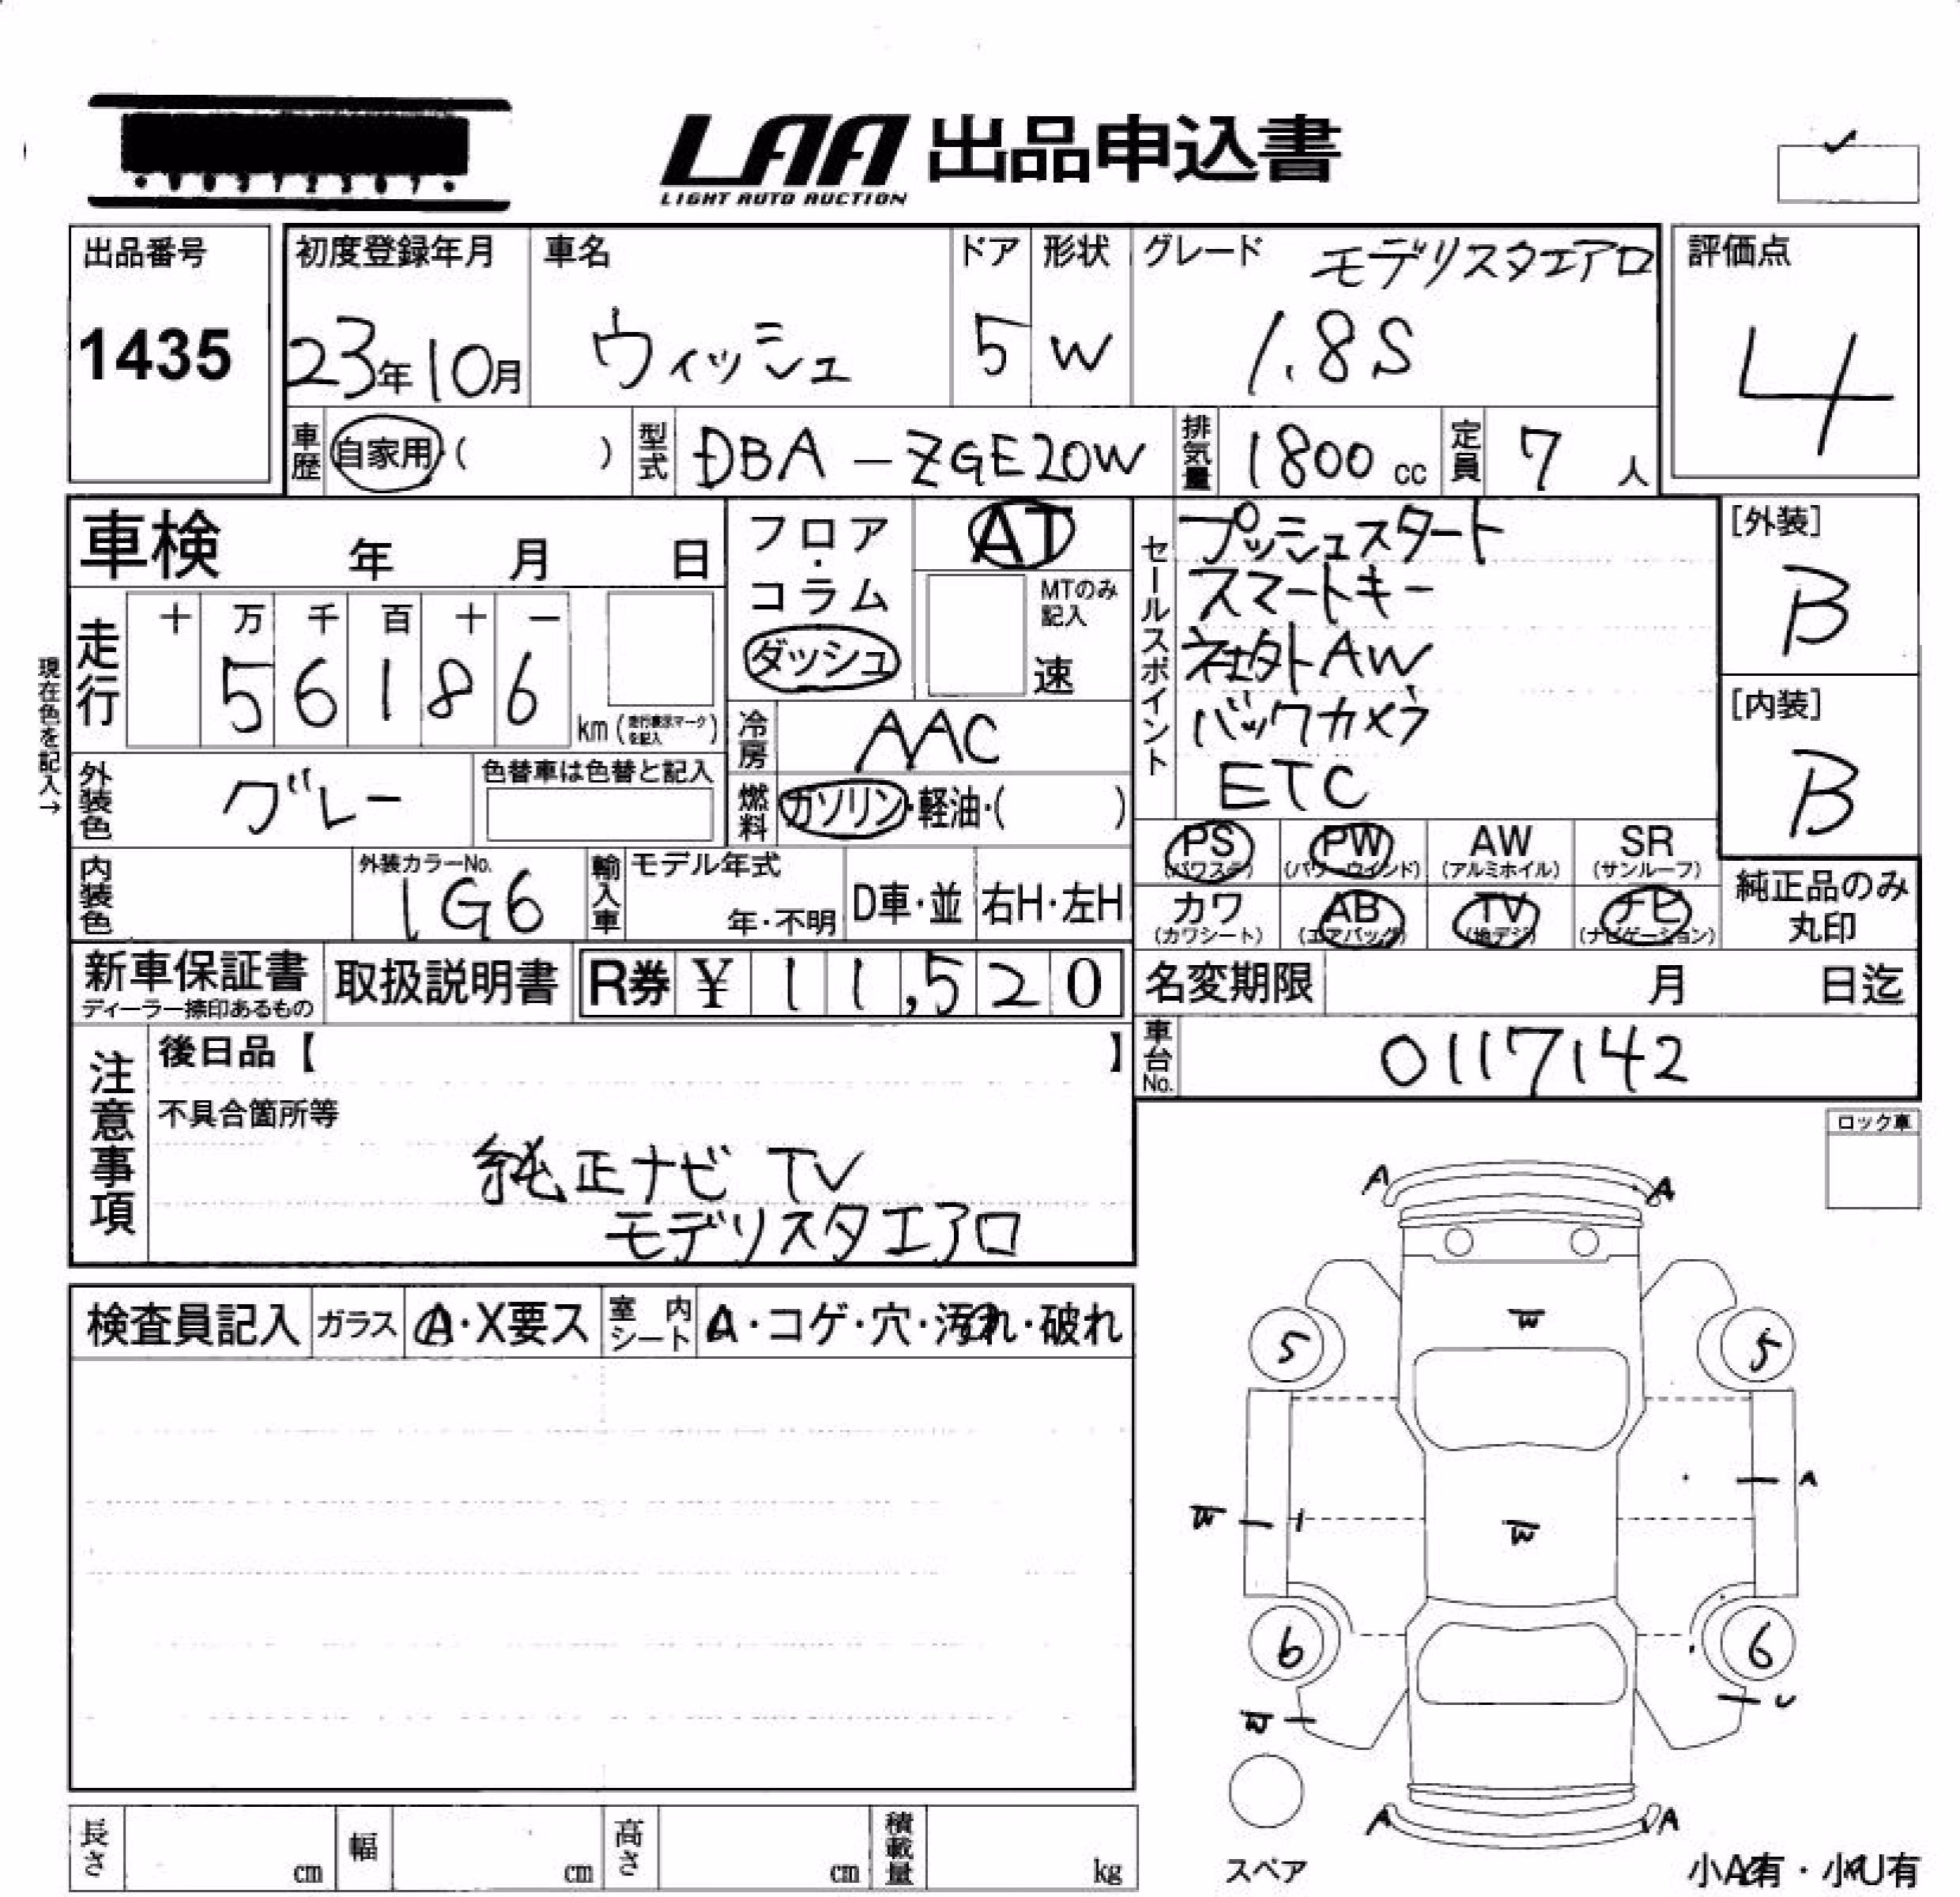 LAA 出品申込書
LIGHT AUTO AUCTION
出品番号
1435
初度登録年月
23年10月
車名
ウィッシュ
ドア
5
形状
W
グレード モデリスタエアロ
1.8S
評価点
4
車歴 自家用・( )
型式 DBA-ZGE20W
排気量 1800 cc
定員 7 人
車検 年 月 日
フロア・
コラム
ダッシュ
AT
MTのみ
記入
速
現在色を記入→
走行
十 万 千 百 十 一
5 6 1 8 6
km (走行表示マークを記入)
冷房 AAC
燃料 ガソリン・軽油・( )
外装色 グレー
色替車は色替と記入
内装色
外装カラーNo.
1G6
輸入車
モデル年式
年・不明
D車・並
右H・左H
セールスポイント
プッシュスタート
スマートキー
社外AW
バックカメラ
ETC
[外装]
B
[内装]
B
PS PW AW SR
(パワステ) (パワーウインド) (アルミホイル) (サンルーフ)
カワ AB TV ナビ
(カワシート) (エアバッグ) (地デジ) (ナビゲーション)
純正品のみ
丸印
新車保証書
ディーラー捺印あるもの
取扱説明書
R券 ¥ 11,520
名変期限 月 日迄
車台No. 0117142
注意事項
後日品【 】
不具合箇所等
純正ナビ TV
モデリスタエアロ
ロック車
検査員記入 ガラス A・X要ス 室内シート A・コゲ・穴・汚れ・破れ
A A
W
5 5
A
W
W
6 6
U
W
A A
スペア
小A有・小U有
長さ cm 幅 cm 高さ cm 積載量 kg